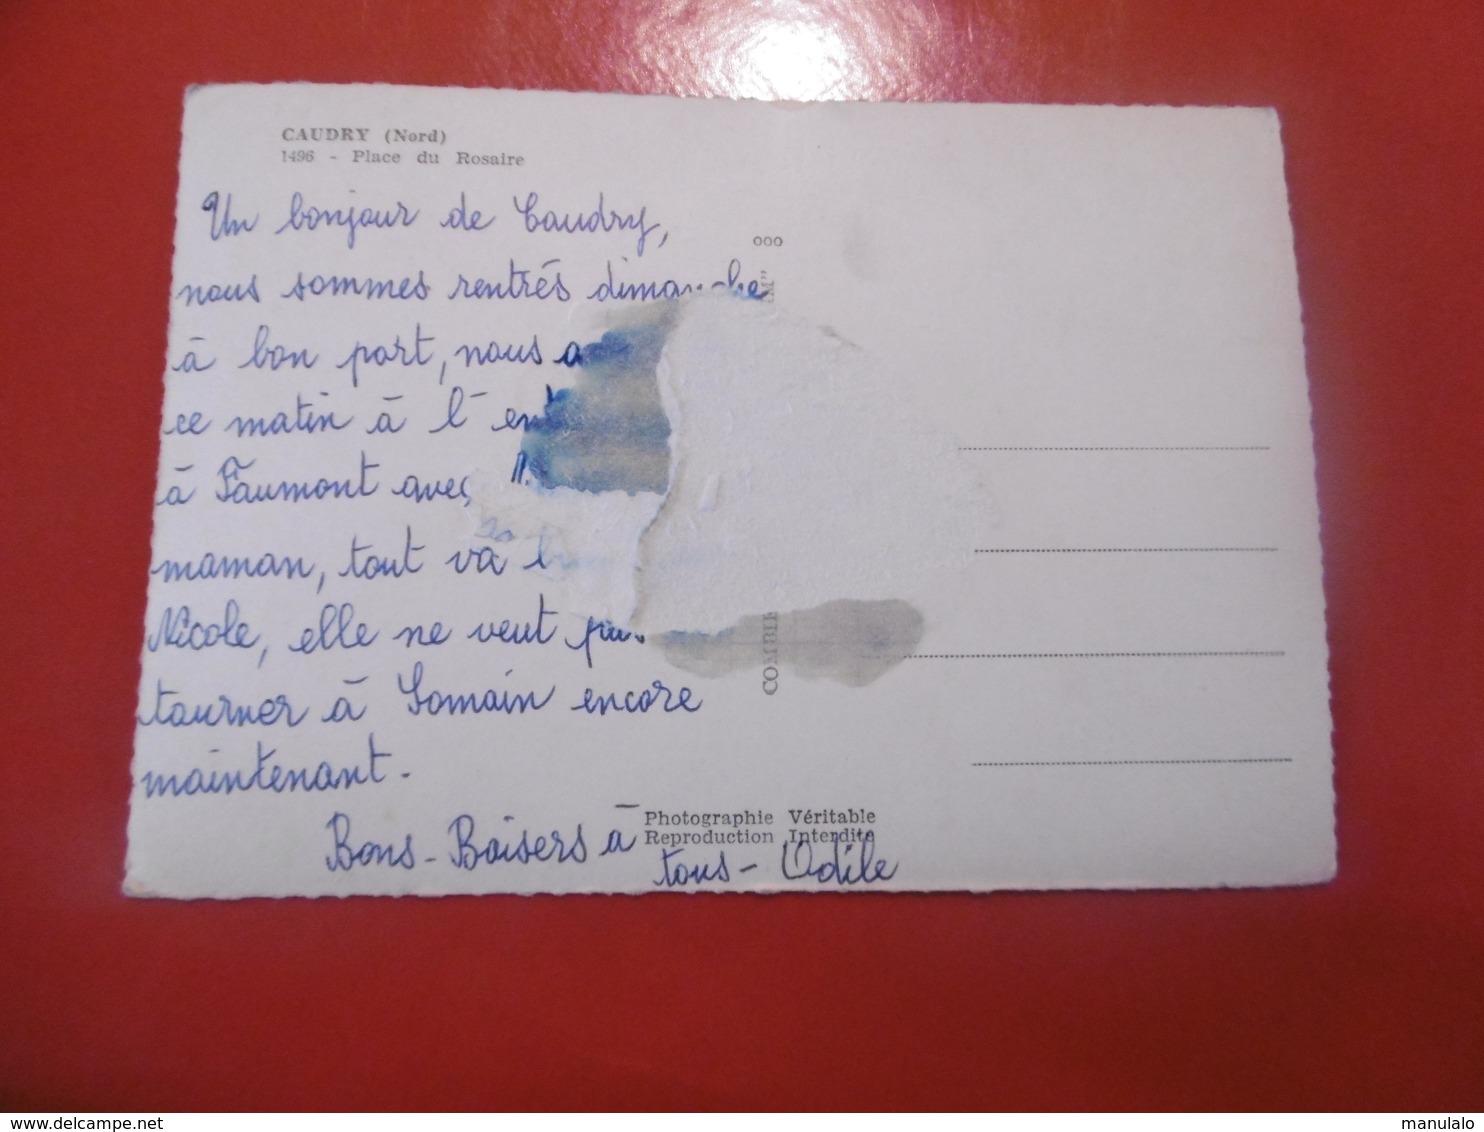 CAUDRY (Nord)
1496 - Place du Rosaire
Un bonjour de Caudry,
nous sommes rentrés dimanche
à bon port, nous a
ce matin à l'ent
à Faumont avec
maman, tout va b
Nicole, elle ne veut pas
tourner à Somain encore
maintenant.
Bons-Baisers à
tous - Odile
ooo
COMBIE
Photographie Véritable
Reproduction Interdite
www.delcampe.net
manulalo